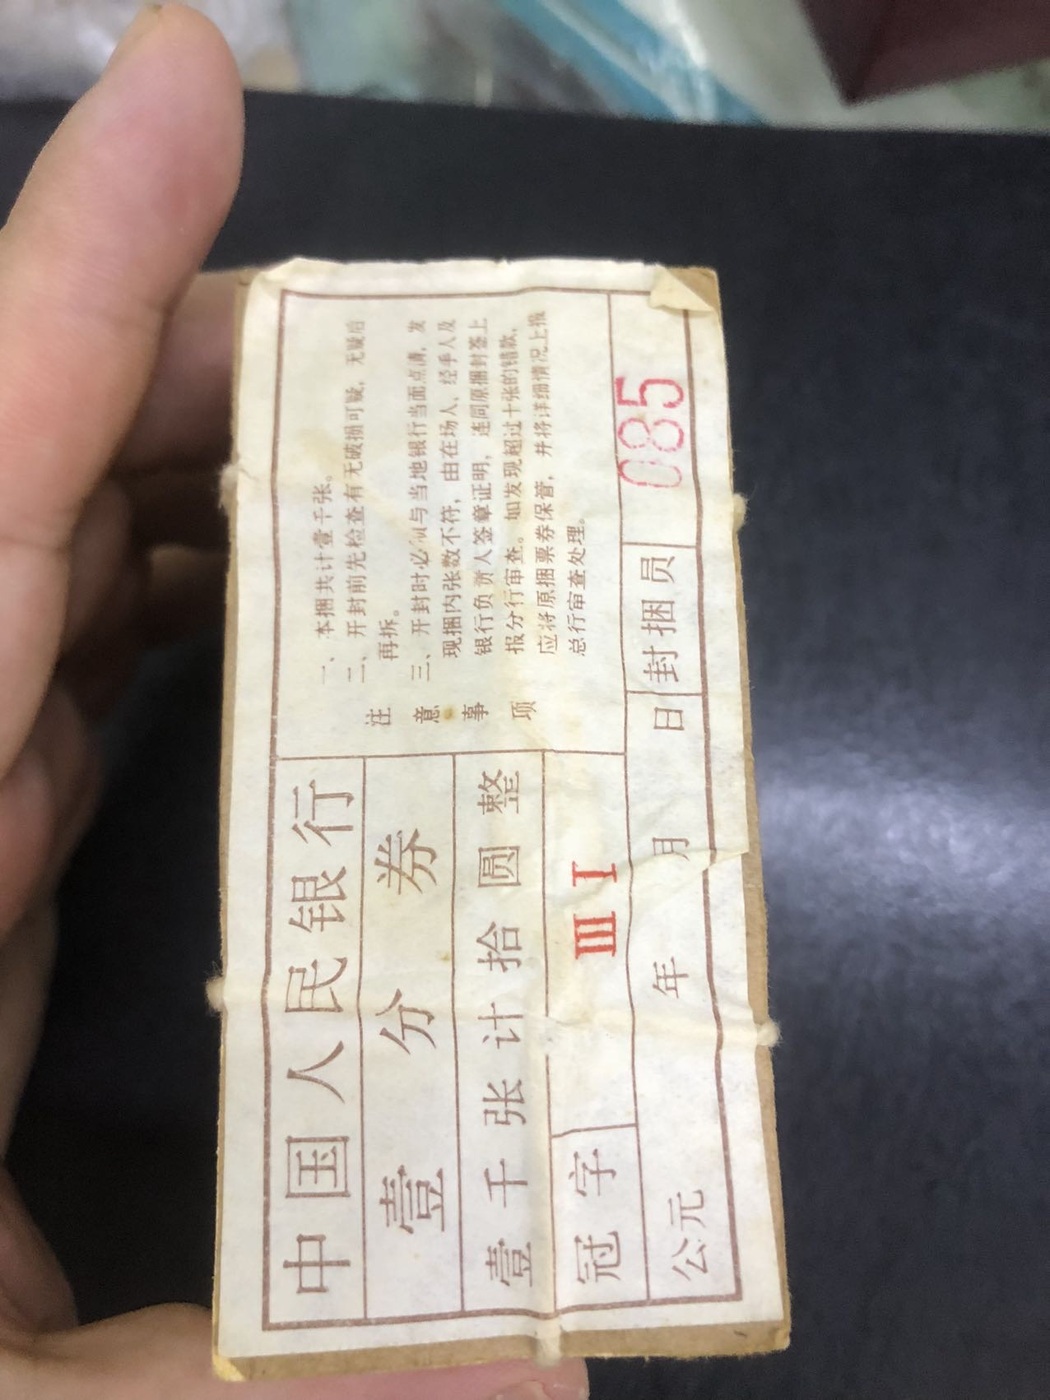 中国人民银行
壹分券
壹千张计拾圆整
冠字 III I
公元 年 月 日 封捆员 085
注意事项
一、本捆共计壹千张。
二、开封前先检查有无破损可疑，无疑后
再拆。
三、开封时必须与当地银行当面点清，发
现捆内张数不符，由在场人、经手人及
银行负责人签章证明，连同原捆封签上
报分行审查。如发现超过十张的错款，
应将原捆票券保管，并将详细情况上报
总行审查处理。